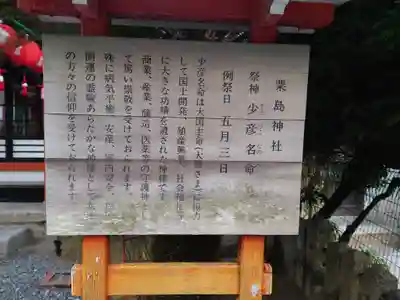 粟島神社
祭神 少彦名命
例祭日 五月三日
少彦名命は大国主命(大黒さま)に協力
して国土開発、殖産産業、社会福祉等
に大きな功績を遺された神様です。
商業、産業、醸造、医薬等の守護神とし
て篤い崇敬を受けておられます。
殊に病気平癒、安産、
開運の霊験あらたかな神様として
の方々の信仰を受けておられます。